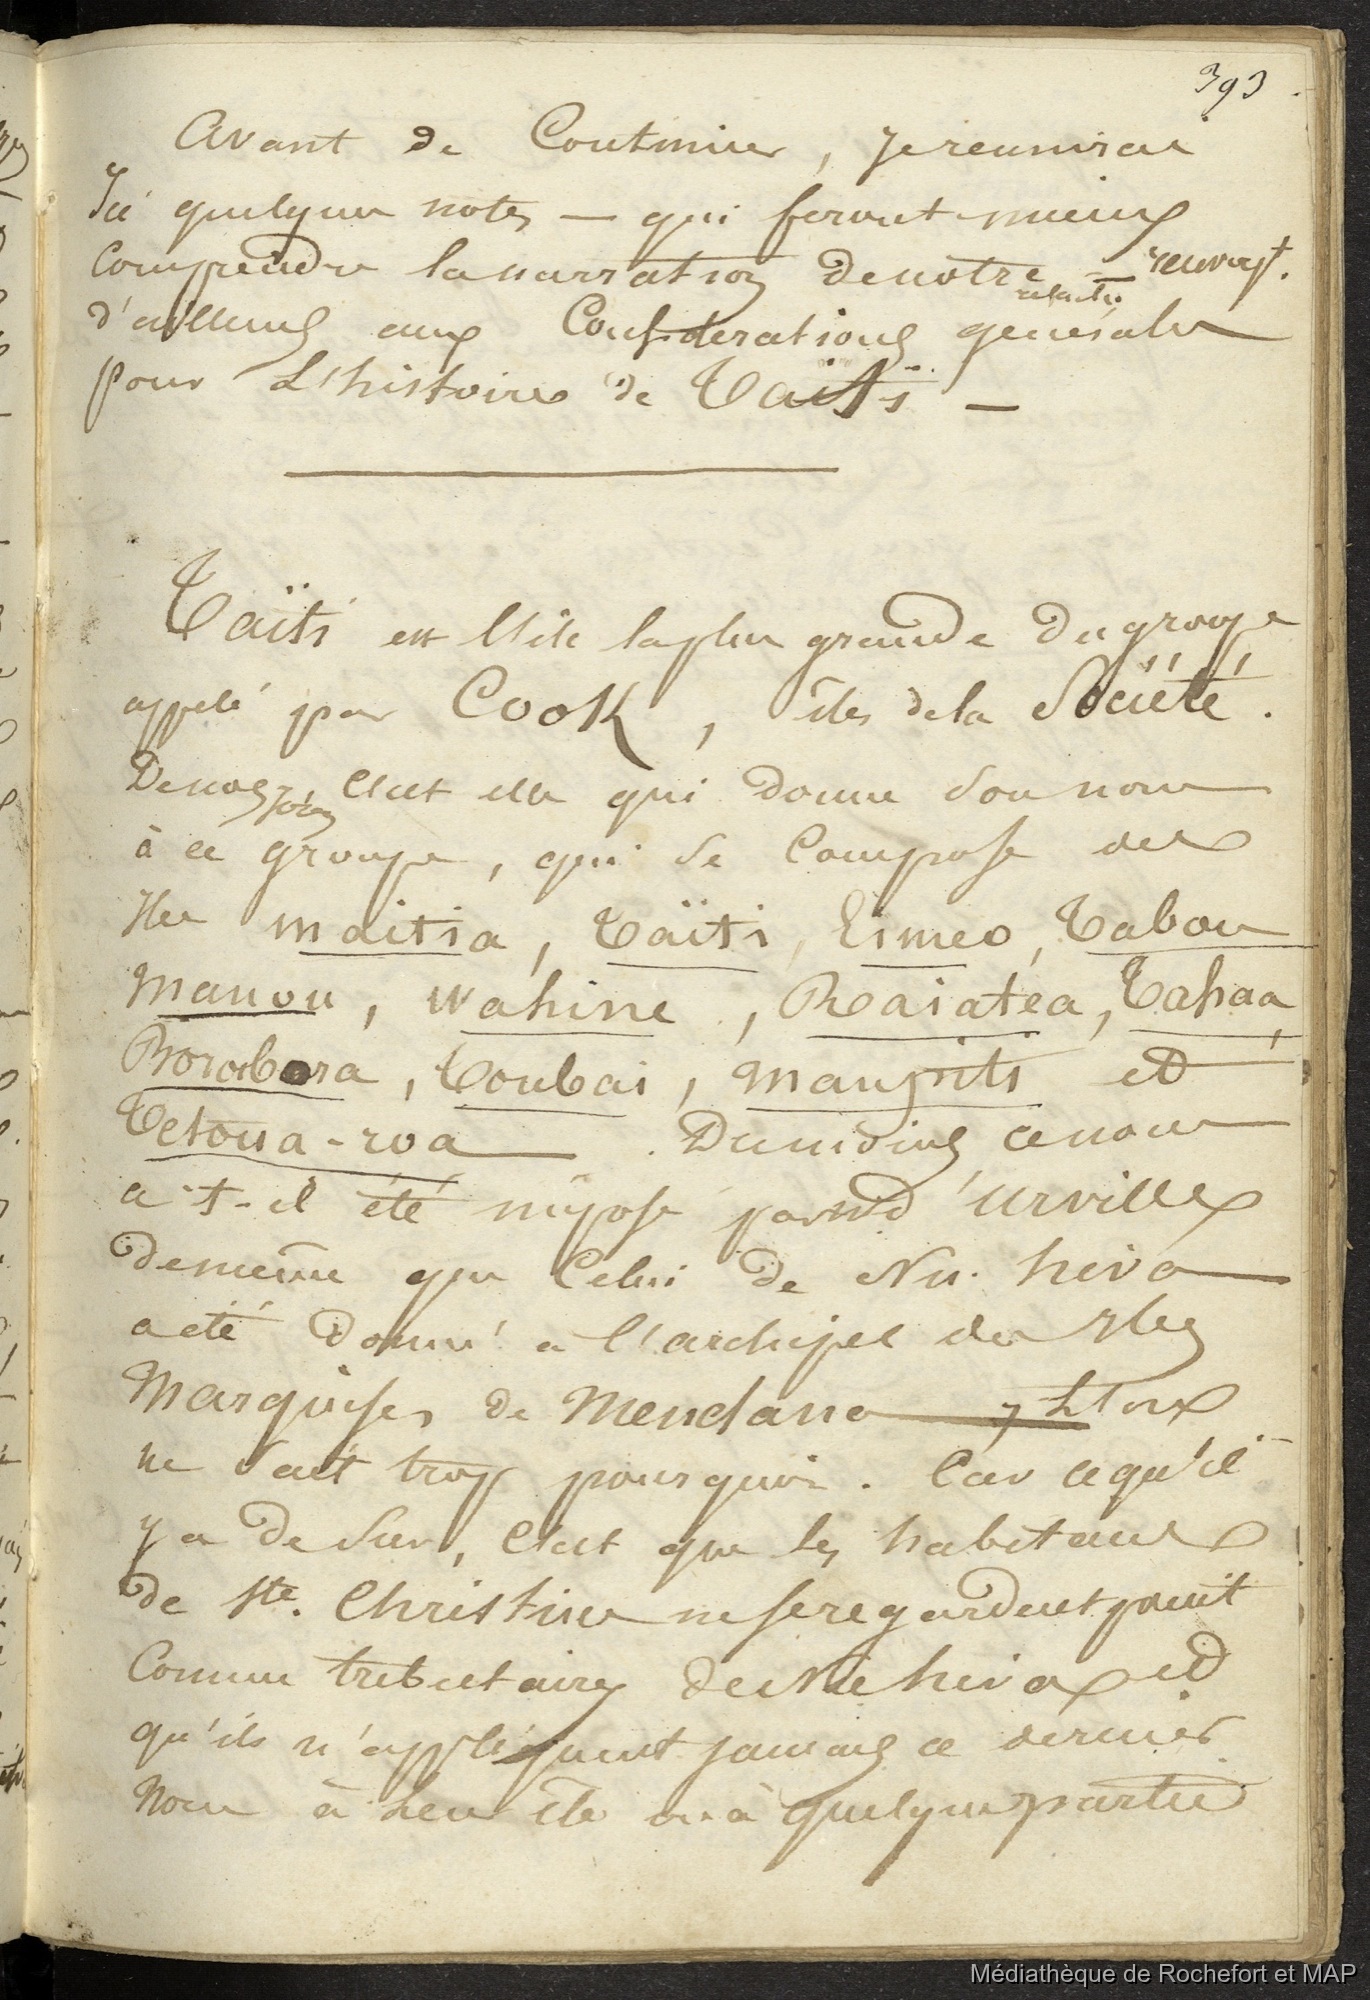 393
Avant de Continuer, Je reunirai
Ici quelques notes — qui feront mieux
Comprendre la narration de notre — renvoyt.
relache
d'ailleurs aux Considerations générales
pour L'histoire de Taïti —
Taïti est l'ile la plus grande du groupe
appelé par Cook, îles de la Société.
De nos jours, C'est elle qui donne son nom
à ce groupe, qui se Compose des
Iles maitia, Taïti, Eimeo, Tabou
Manou, Wahine, Raiatea, Tahaa,
Borabora, Toubai, maupiti et
Tetoua-roa. Du moins ce nom
a-t-il été imposé par md'Urville
de même que Celui de Nu-hiva
a été donné a l'archipel des Iles
Marquises de Mendana
ne sait trop pourquoi. Car ce qu'il
y a de sur, C'est que les habitans
de Ste. Christine ne se regardent point
Comme tributaires de Nuhiva et
qu'ils n'appliquent jamais ce dernier
Nom à Leur île ou à quelque partie
Médiathèque de Rochefort et MAP